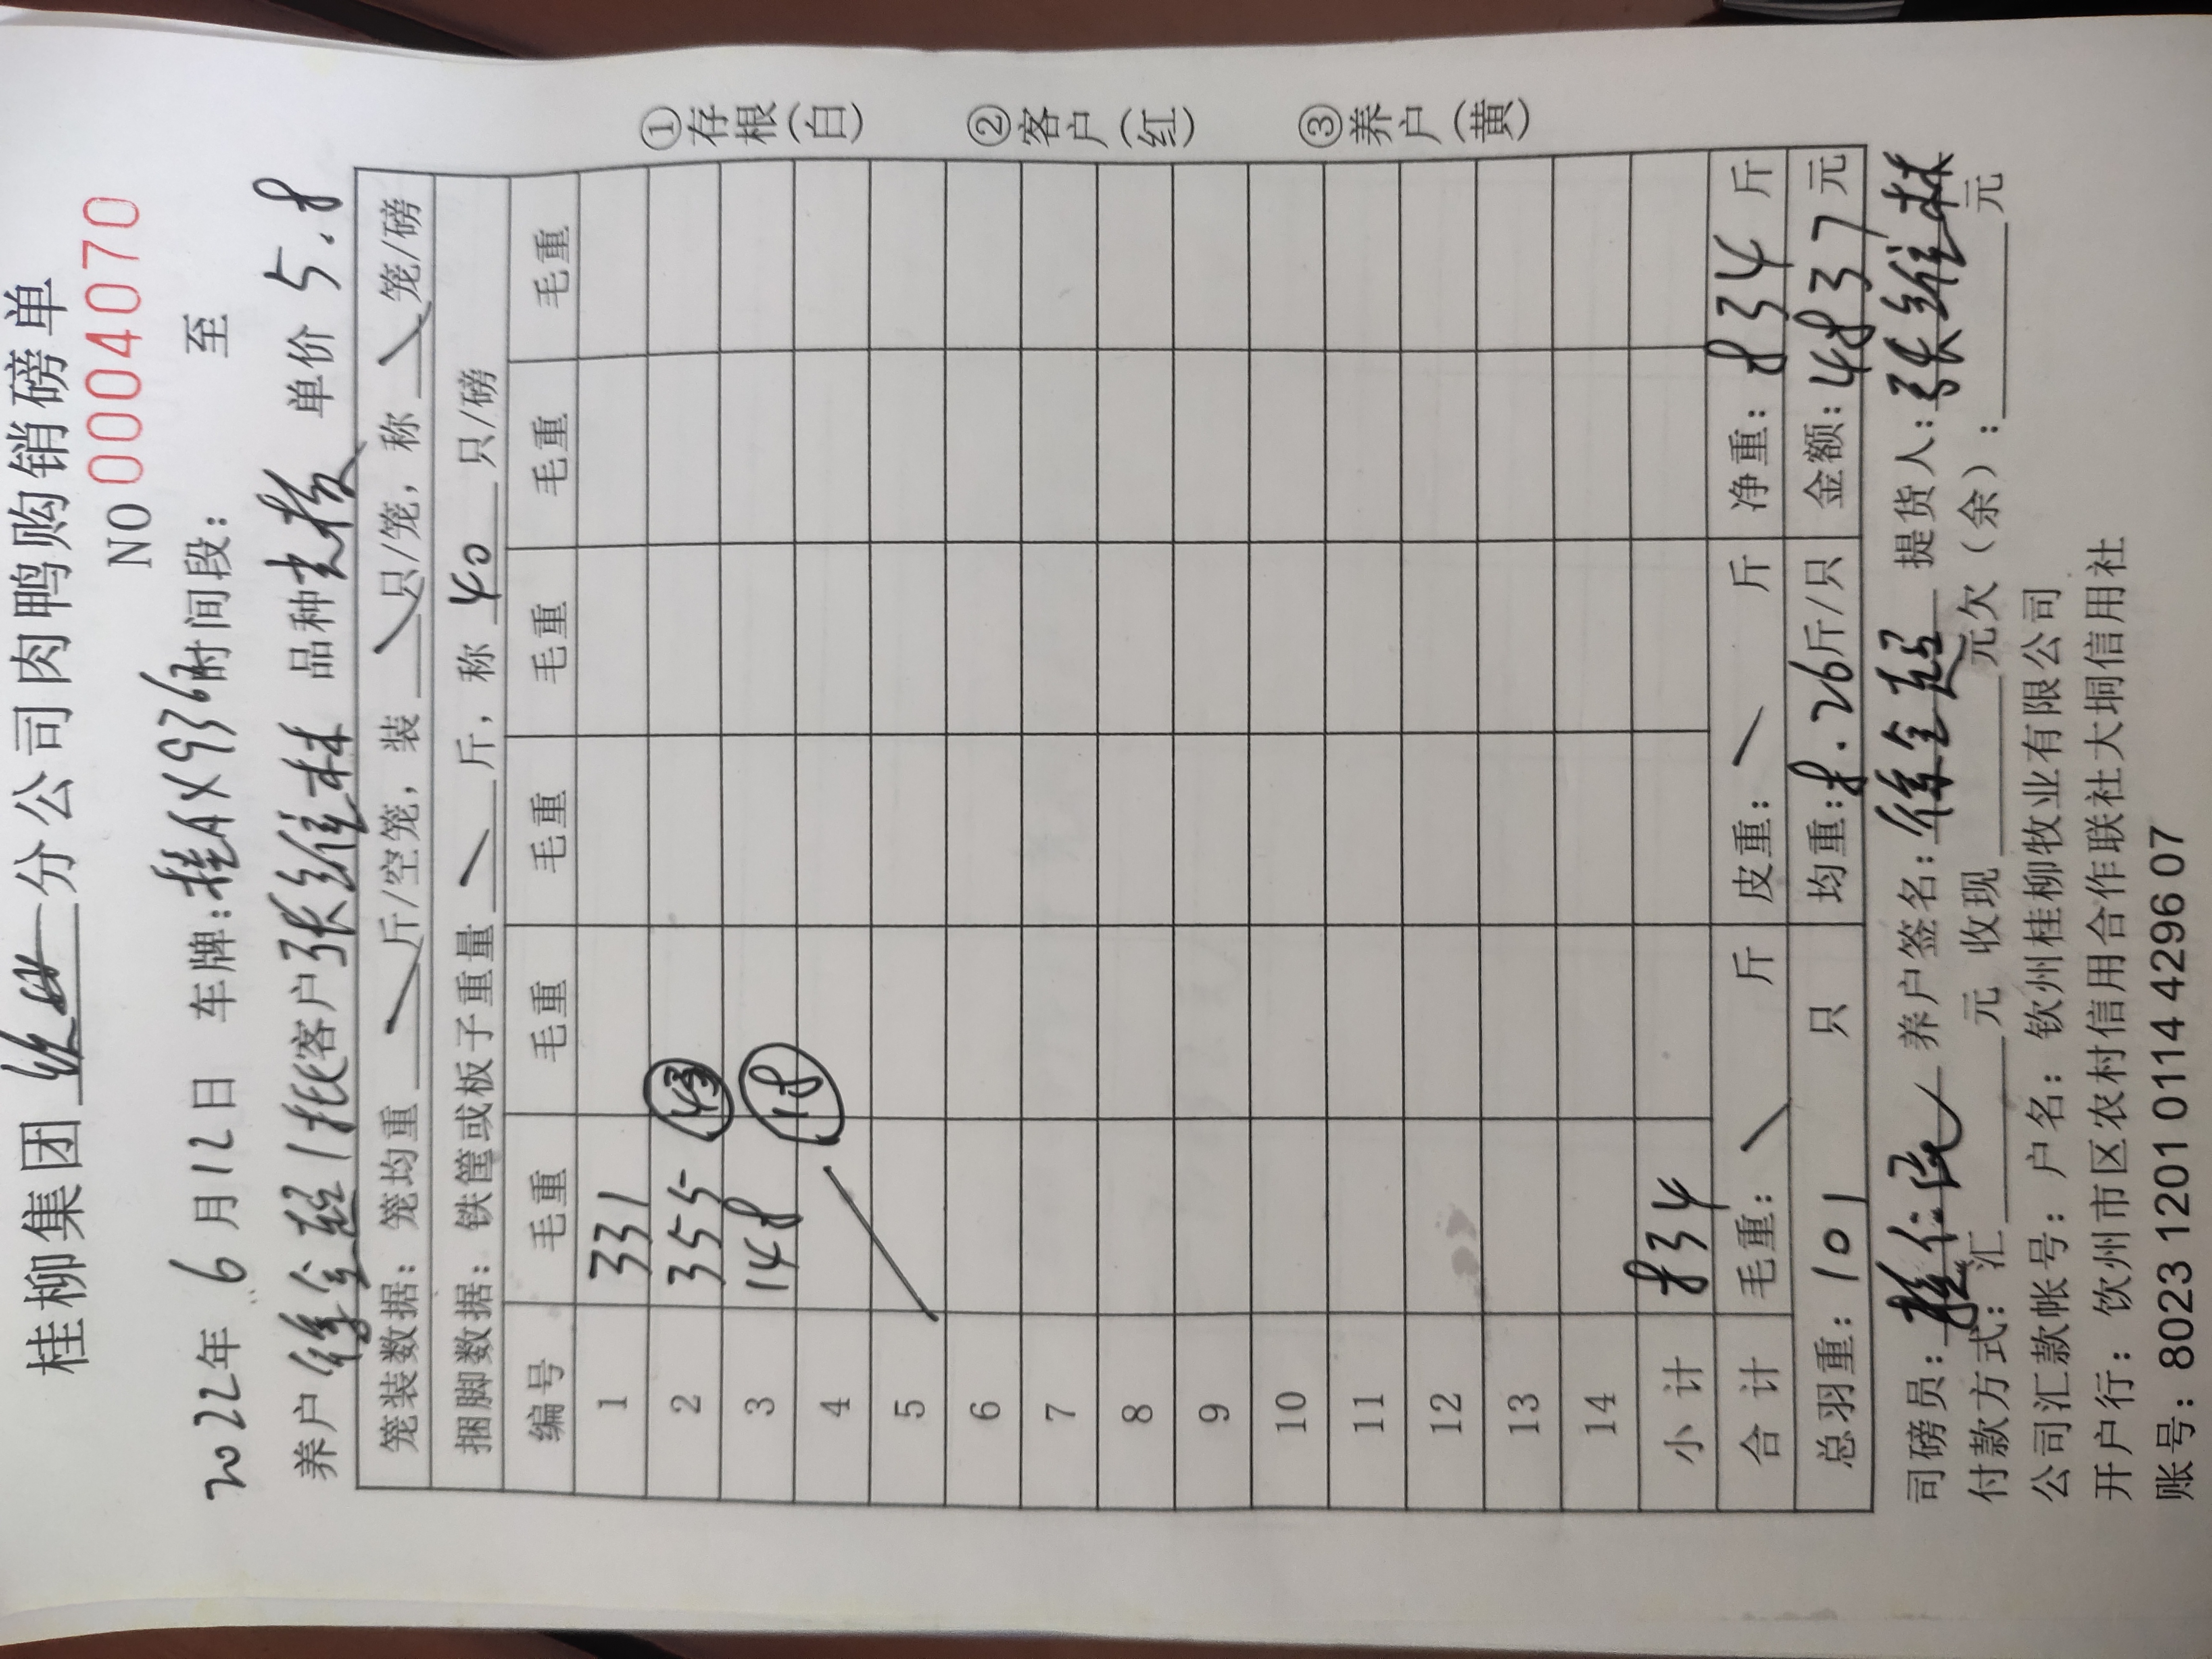 桂柳集团 钦州 分公司肉鸭购销磅单
NO 0004070
2022年 6月12日 车牌:桂AX936 时间段: 至
养户 1批客户 张维林 品种 单价 5.8
笼装数据: 笼均重 斤/空笼, 装 只/笼, 称 笼/磅
捆脚数据: 铁筐或板子重量 斤, 称 40 只/磅
编号 毛重 毛重 毛重 毛重 毛重 毛重
1 331
2 355 43
3 148 18
4
5
6
7
8
9
10
11
12
13
14
小 计 834
合 计 毛重: 斤 皮重: 斤 净重: 834 斤
总羽重: 101 只 均重: 8.26斤/只 金额: 4837元
司磅员: 养户签名: 提货人: 张维林
付款方式: 汇 元 收现 元欠(余): 元
公司汇款帐号: 户名: 钦州桂柳牧业有限公司
开户行: 钦州市区农村信用合作联社大垌信用社
账号: 8023 1201 0114 4296 07
①存根(白)
②客户(红)
③养户(黄)